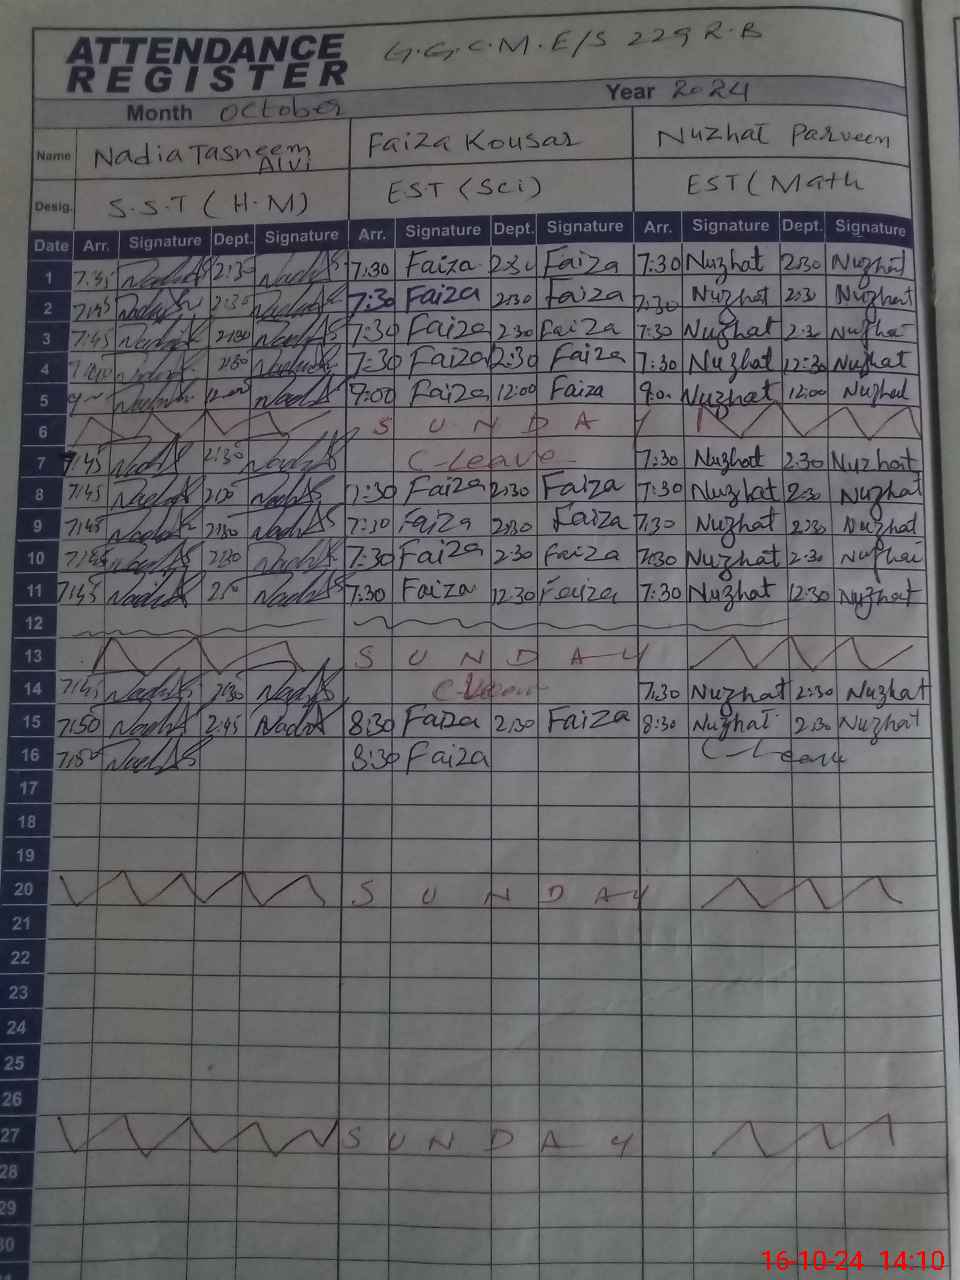 ATTENDANCE REGISTER
G.G.C.M.E/S 229 R.B
Month October Year 2024
Name Nadia Tasneem Alvi Faiza Kousar Nuzhat Parveen
Desig. S.S.T (H.M) EST (Sci) EST (Math
Date Arr. Signature Dept. Signature Arr. Signature Dept. Signature Arr. Signature Dept. Signature
1 2:30 7:30 Faiza 2:30 Faiza 7:30 Nuzhat 2:30 Nuzhat
2 7:45 2:30 7:30 Faiza 2:30 Faiza 7:30 Nuzhat 2:30 Nuzhat
3 7:45 2:30 7:30 Faiza 2:30 Faiza 7:30 Nuzhat 2:3 Nuzhat
4 7:30 Faiza 12:30 Faiza 7:30 Nuzhat 12:30 Nuzhat
5 9:00 Faiza 12:00 Faiza 9:0 Nuzhat 12:00 Nuzhat
6 S U N D A Y
7 7:45 2:30 C-Leave 7:30 Nuzhat 2:30 Nuzhat
8 7:45 7:30 Faiza 2:30 Faiza 7:30 Nuzhat 2:30 Nuzhat
9 7:45 2:30 7:30 Faiza 2:30 Faiza 7:30 Nuzhat 2:30 Nuzhat
10 7:45 2:30 7:30 Faiza 2:30 Faiza 7:30 Nuzhat 2:30 Nuzhat
11 7:45 7:30 Faiza 12:30 Faiza 7:30 Nuzhat 12:30 Nuzhat
12
13 S U N D A Y
14 7:45 2:30 C-Leave 7:30 Nuzhat 2:30 Nuzhat
15 7:50 2:45 8:30 Faiza 2:30 Faiza 8:30 Nuzhat 2:30 Nuzhat
16 7:50 8:30 Faiza C-Leave
17
18
19
20 S U N D A Y
21
22
23
24
25
26
27 S U N D A Y
28
29
30
16-10-24 14:10